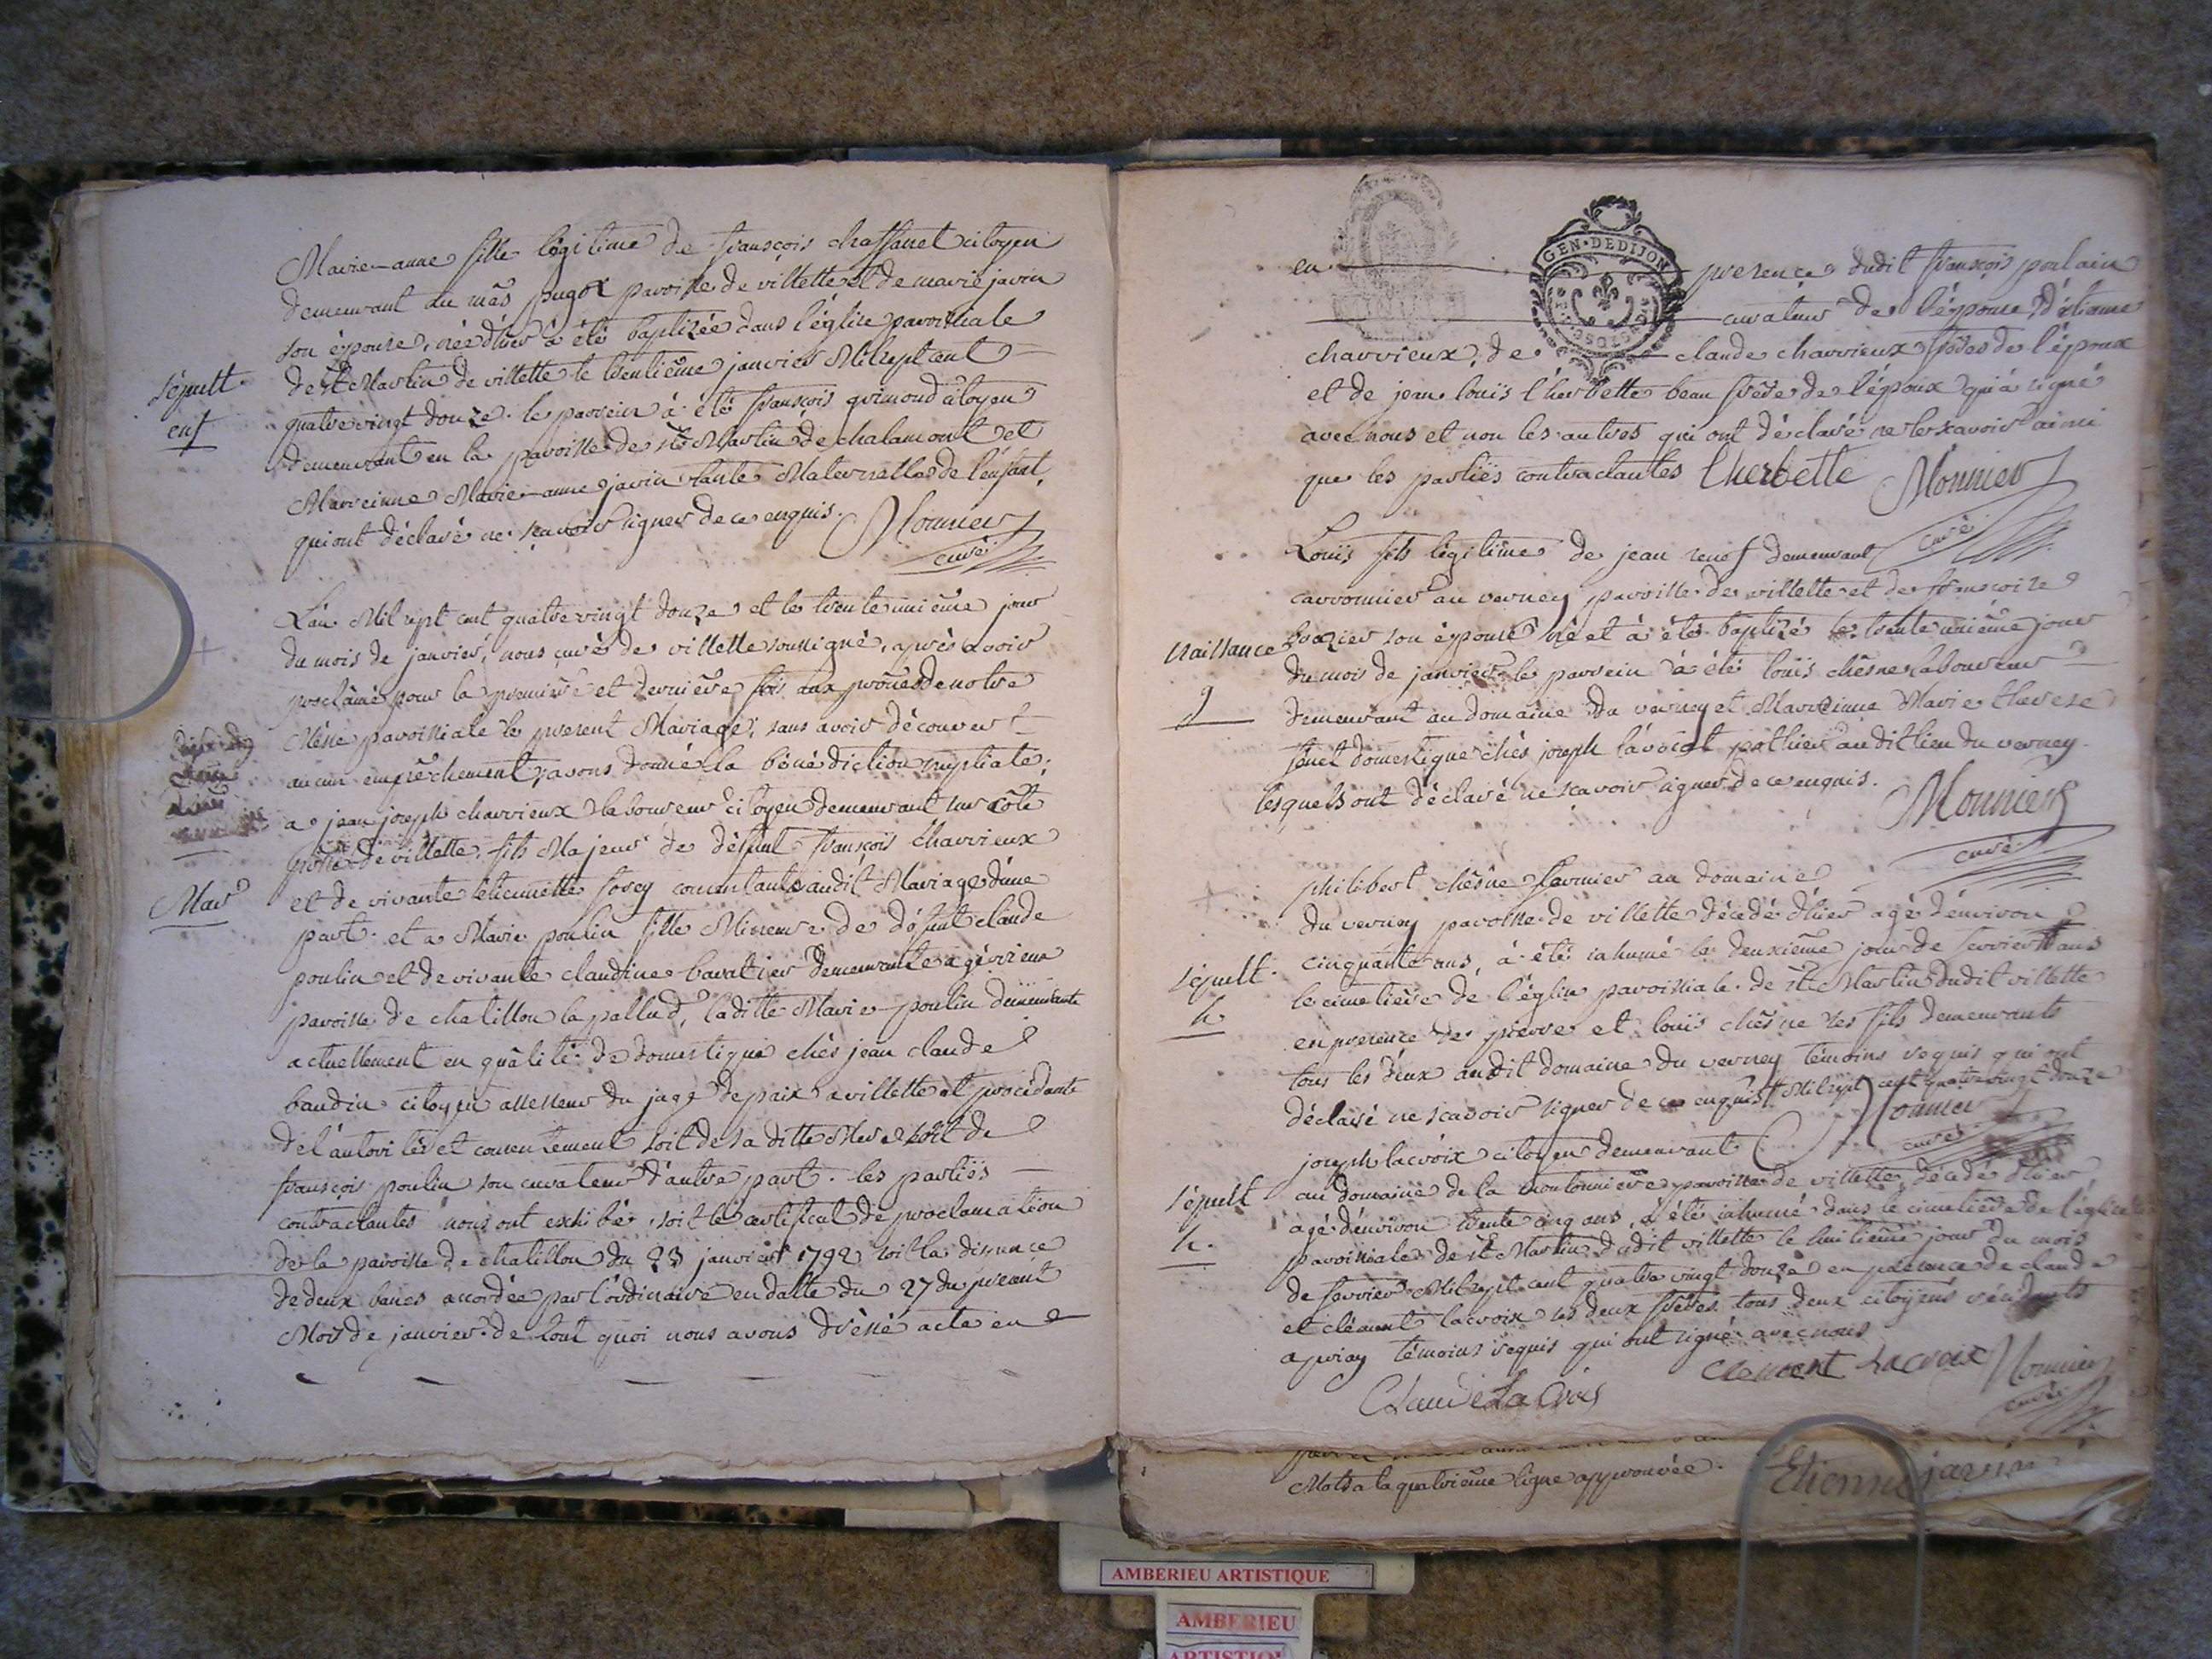 Marie-anne fille légitime de françois chaffanet citoyen
demeurant au mâs pugoz paroisse de villette et de marie javin
son épouse, née d'hier à été baptizée dans l'église paroissiale
de st Martin de villette le trentième janvier Mil sept cent
quatre vingt douze. le parrein à été françois grimoud citoyen
demeurant en la paroisse de st Martin de chalamont et
Marreinne Marie-anne javin tante Maternelle de l'enfant,
qui ont déclaré ne sçavoir signer de ce enquis. Monnier
curé
sépult.
enf
L'an Mil sept cent quatre vingt douze et le trente unième jour
du mois de janvier, nous curé de villette soussigné, après avoir
proclâmé pour la première et dernière fois aux prônes de notre
Mèsse paroissiale le present Mariage; sans avoir découvert
aucun empêchement, avons donné la bénédiction nuptiale;
a jean joseph charvieux laboureur citoyen demeurant sur côte
psse de villette, fils Majeur de défunt françois charvieux
et de vivante etiennette forey consentante audit Mariage d'une
part. et a Marie poulin fille Mineure de défunt claude
poulin et de vivante claudine bavatier demeurante a gévrieux
paroisse de chatillon la pallud, laditte Marie poulin demeurante
actuellement en quâlité de domestique chés jean claude
baudin citoyen assesseur du juge de paix a villette et procédante
de l'autorité et consentement soit de sa ditte Mere soit de
françois poulin son curateur d'autre part. les partiës
contractantes nous ont exhibé, soit le certificat de proclamation
de la paroisse de chatillon du 23 janvier 1792 soit la dispence
de deux bancs accordée par l'ordinaire en datte du 27 du present
Mois de janvier. de tout quoi nous avons drèssé acte en
Mar
GEN. DE DIJON
en presence dudit françois poulain
curateur de l'épouse, d'étienne
charvieux, de claude charvieux frères de l'époux
et de jean louis l'herbette beau frère de l'époux qui a signé
avec nous et non les autres qui ont déclaré ne le sçavoir ainsi
que les partiës contractantes lherbette Monnier
curé
Louïs fils légitime de jean renof demeurant
carronnier au verney paroisse de villette et de françoise
brazier son épouse né et à été baptizé le trente unième jour
du mois de janvier. le parrein à été louïs chêsne laboureur
demeurant au domaine du verney et Marreinne Marie therese
fenet domestique chés joseph lávocat pothier audit lieu du verney
lesquels ont déclaré ne scavoir signer de ce enquis.
Monnier
curé
naissance
g
philibert chêsne fermier au domaine
du verney paroisse de villette décédé d'hier agé d'environ
cinquante ans, à été inhumé le deuxième jour de fevrier dans
le cimetière de l'église paroissiale de st Martin dudit villette
en presence de pierre et louïs chêsne ses fils demeurants
tous les deux audit domaine du verney témoins requis qui ont
déclaré ne scavoir signer de ce enquis # Mil sept cent quatre vingt douze
Monnier
curé
sépult.
h.
joseph lacroix citoyen demeurant
au domaine de la moutonnière paroisse de villette décédé d'hier
agé d'environ trente cinq ans, a été inhumé dans le cimetière de l'église
paroissiale de st Martin dudit villette le huitième jour du mois
de fevrier Mil sept cent quatre vingt douze en presence de claude
et clément lacroix ses deux frères tous deux citoyens résidents
a priay témoins requis qui ont signé avec nous
Clement Lacroix Monnier
Claude La Croix curé
sépult
h.
Mots a la quatrième ligne approuvée.
Etienne javin
AMBERIEU ARTISTIQUE
AMBERIEU
ARTISTIQUE